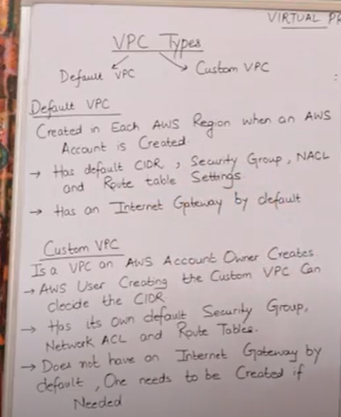 VIRTUAL PR
VPC Types
Default VPC
Custom VPC
Default VPC
Created in Each AWS Region when an AWS
Account is Created.
→ Has default CIDR, Security Group, NACL
and Route table Settings
→ Has an Internet Gateway by default
Custom VPC
Is a VPC an AWS Account Owner Creates
→ AWS User Creating the Custom VPC Can
decide the CIDR
→ Has its own default Security Group,
Network ACL and Route Tables.
→ Does not have an Internet Gateway by
default, One needs to be Created if
Needed